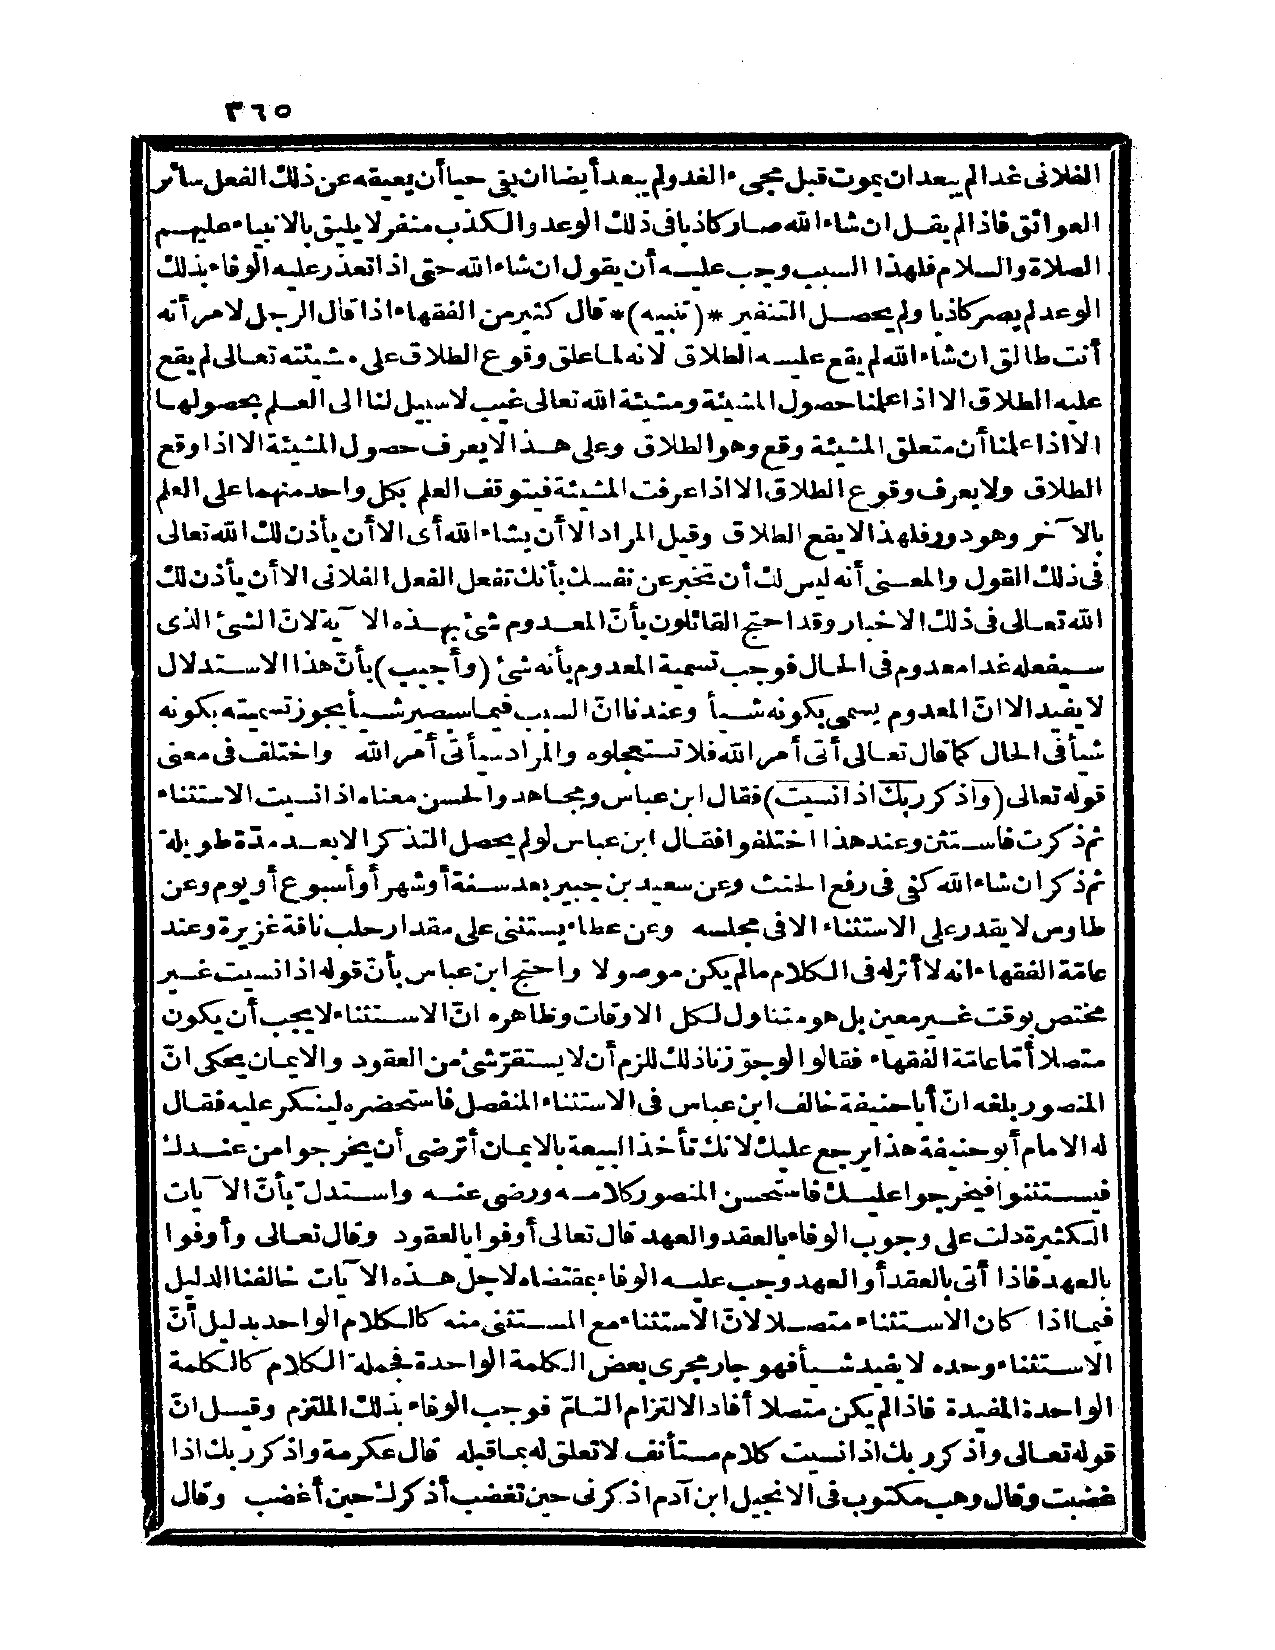 ٣٦٥
الفلانى غدا لم يبعد ان يموت قبل مجىء الغد ولم يبعد أيضا ان بقى حيا أن يعيقه عن ذلك الفعل سائر
العوائق فاذا لم يقل ان شاء الله صار كاذبا فى ذلك الوعد والكذب منفر لا يليق بالانبياء عليهم
الصلاة والسلام فلهذا السبب وجب عليه أن يقول ان شاء الله حتى اذا تعذر عليه الوفاء بذلك
الوعد لم يصر كاذبا ولم يحصل التنفير *(تنبيه)* قال كثير من الفقهاء اذا قال الرجل لامرأته
أنت طالق ان شاء الله لم يقع عليه الطلاق لانه لما علق وقوع الطلاق على مشيئته تعالى لم يقع
عليه الطلاق الا اذا علمنا حصول المشيئة ومشيئة الله تعالى غيب لا سبيل لنا الى العلم بحصولها
الا اذا علمنا أن متعلق المشيئة وقع وهو الطلاق وعلى هذا لا يعرف حصول المشيئة الا اذا وقع
الطلاق ولا يعرف وقوع الطلاق الا اذا عرفت المشيئة فيتوقف العلم بكل واحد منهما على العلم
بالآخر وهو دور فلهذا لا يقع الطلاق وقيل المراد الا أن يشاء الله أى الا أن يأذن لك الله تعالى
فى ذلك القول والمعنى أنه ليس لك أن تخبر عن نفسك بأنك تفعل الفعل الفلانى الا أن يأذن لك
الله تعالى فى ذلك الاخبار وقد احتج القائلون بأنّ المعدوم شئ بهذه الآية لانّ الشئ الذى
سيفعله غدا معدوم فى الحال فوجب تسمية المعدوم بأنه شئ (وأجيب) بأنّ هذا الاستدلال
لا يفيد الا انّ المعدوم يسمى بكونه شيأ وعندنا انّ السبب فيما سيصير شيأ يجوز تسميته بكونه
شيأ فى الحال كما قال تعالى أتى أمر الله فلا تستعجلوه والمراد سيأتى أمر الله واختلف فى معنى
قوله تعالى (واذكر ربك اذا نسيت) فقال ابن عباس ومجاهد والحسن معناه اذا نسيت الاستثناء
ثم ذكرت فاستثن وعند هذا اختلفوا فقال ابن عباس لو لم يحصل التذكر الا بعد مدّة طويلة
ثم ذكر ان شاء الله كفى فى رفع الحنث وعن سعيد بن جبير بعد سنة أو شهر أو أسبوع أو يوم وعن
طاوس لا يقدر على الاستثناء الا فى مجلسه وعن عطاء يستثنى على مقدار حلب ناقة غزيرة وعند
عامّة الفقهاء انه لا أثر له فى الكلام ما لم يكن موصولا واحتج ابن عباس بأنّ قوله اذا نسيت غير
مختص بوقت غير معين بل هو متناول لكل الاوقات وظاهره انّ الاستثناء لا يجب أن يكون
متصلا أمّا عامّة الفقهاء فقالوا لو جوّزنا ذلك للزم أن لا يستقرّ شئ من العقود والايمان يحكى انّ
المنصور بلغه انّ أبا حنيفة خالف ابن عباس فى الاستثناء المنفصل فاستحضره لينكر عليه فقال
له الامام أبو حنيفة هذا يرجع عليك لانك تأخذ البيعة بالايمان أترضى أن يخرجوا من عندك
فيستثنوا فيخرجوا عليك فاستحسن المنصور كلامه ورضى عنه واستدل بأنّ الآيات
الكثيرة دلت على وجوب الوفاء بالعقد والعهد قال تعالى أوفوا بالعقود وقال تعالى وأوفوا
بالعهد فاذا أتى بالعقد أو العهد وجب عليه الوفاء بمقتضاه لاجل هذه الآيات خالفنا الدليل
فيما اذا كان الاستثناء متصلا لانّ الاستثناء مع المستثنى منه كالكلام الواحد بدليل أنّ
الاستثناء وحده لا يفيد شيأ فهو جار مجرى بعض الكلمة الواحدة فجملة الكلام كالكلمة
الواحدة المفيدة فاذا لم يكن متصلا أفاد الالتزام التامّ فوجب الوفاء بذلك الملتزم وقيل انّ
قوله تعالى واذكر ربك اذا نسيت كلام مستأنف لا تعلق له بما قبله قال عكرمة واذكر ربك اذا
غضبت وقال وهب مكتوب فى الانجيل ابن آدم اذكرنى حين تغضب أذكرك حين أغضب وقال